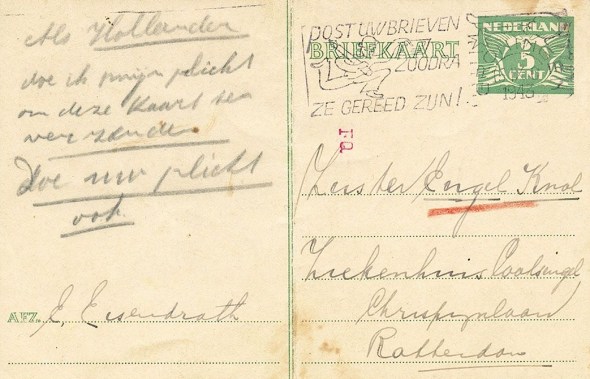 Als Hollander
doe ik mijn plicht
om deze kaart te
verzenden
Doe uw plicht
ook
AFZ. E. Eisendrath
POST UW BRIEVEN
ZOODRA
ZE GEREED ZIJN!
BRIEFKAART
NEDERLAND
5
CENT
1943
Zuster Engel Knol
Ziekenhuis Coolsingel
Rotterdam